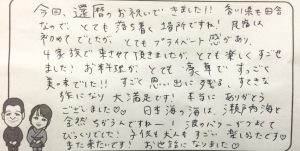 今回、還暦のお祝いできました!! 香川県も田舎
なので、とても落ち着く場所ですね! 民宿は
初めてでしたが、とてもプライベート感があり、
4家族で来させて頂きましたが、とても楽しくすごせ
ました! お料理が、とても豪華で すっごく
美味でした!! すごく思い出に残る すてきな
旅になり 大満足です! 本当に ありがとう
ございました♡ 日本海の海は、瀬戸内海と
全然ちがうんですねー! 波のパワーがつよくて
びっくりでした! 子供も大人も すごい 楽しかったです♡
また来たいです! お世話になりました♡